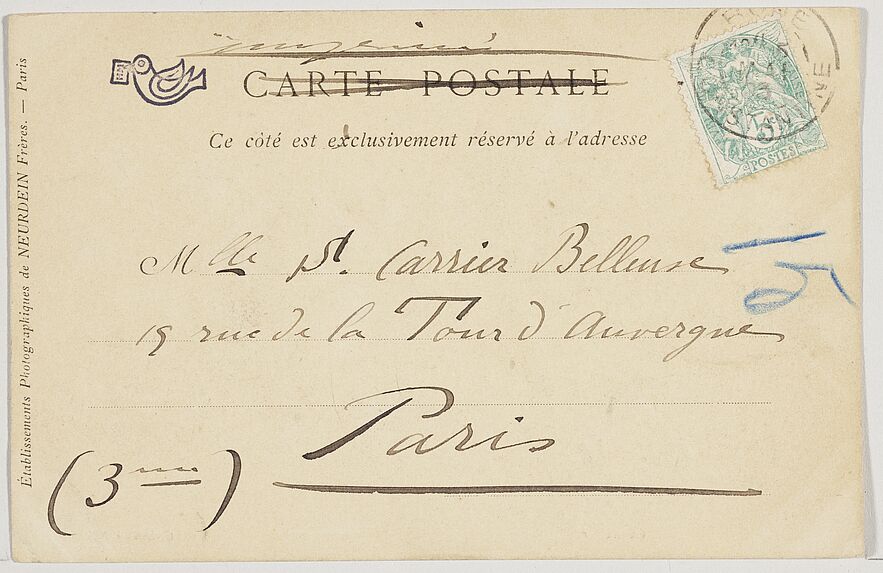 CARTE POSTALE
Ce côté est exclusivement réservé à l'adresse
Mlle P. Carrier Belleuse
15 rue de la Tour d'Auvergne
Paris
(3me)
Établissements Photographiques de NEURDEIN Frères. — Paris
POSTES